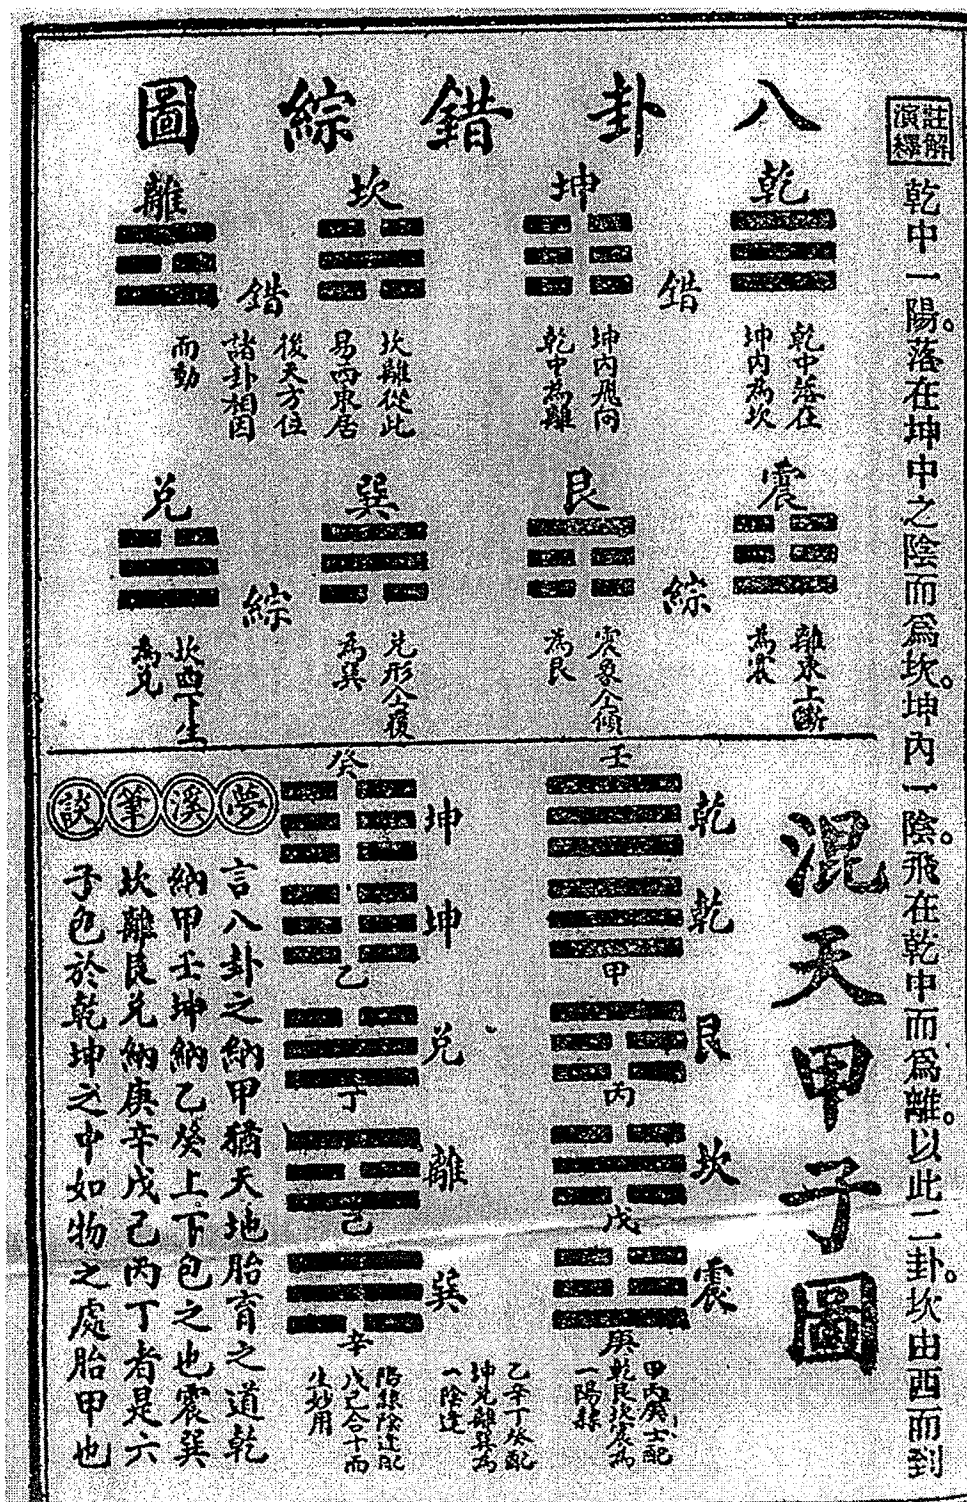 註解
演繹
乾中一陽。落在坤中之陰而爲坎。坤內一陰。飛在乾中而爲離。以此二卦。坎由西而到
八卦錯綜圖
乾
坤
錯
坎
離
錯
乾中落在
坤內為坎
坤內飛向
乾中為離
坎離從此
易西東居
後天方位
諸卦相因
而動
震
艮
綜
巽
兌
綜
離東上斷
為震
震象仝傾
為艮
兌形仝覆
為巽
坎西下生
為兌
混天甲子圖
壬
乾
乾
甲
艮
丙
坎
戊
震
庚
癸
坤
坤
乙
兌
丁
離
己
巽
辛
甲丙庚壬配
乾艮坎震為
一陽錄
乙辛丁癸配
坤兌離巽為
一陰逹
陽錄陰逹配
戊己合十而
生妙用
夢溪筆談
言八卦之納甲猶天地胎育之道乾
納甲壬坤納乙癸上下包之也震巽
坎離艮兌納庚辛戊己丙丁者是六
子包於乾坤之中如物之處胎甲也